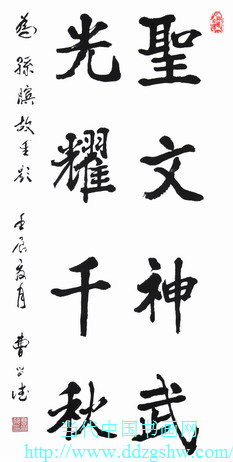 聖文神武
光耀千秋
為孫臏故里題
壬辰夏月 曹学德
当代中国书画网
http://www.ddzgshw.com